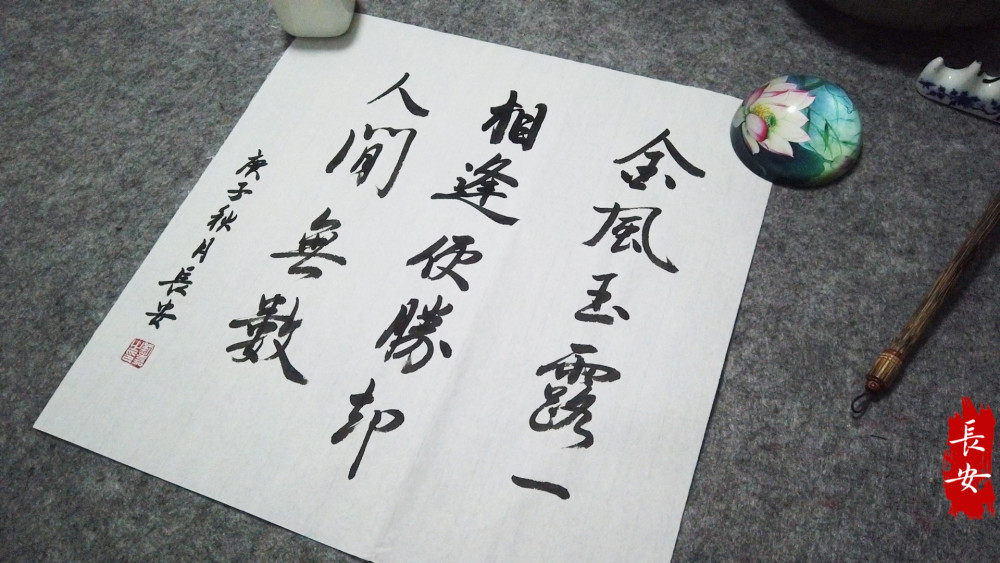 金風玉露一
相逢便勝却
人間無數
庚子秋月長安
長安